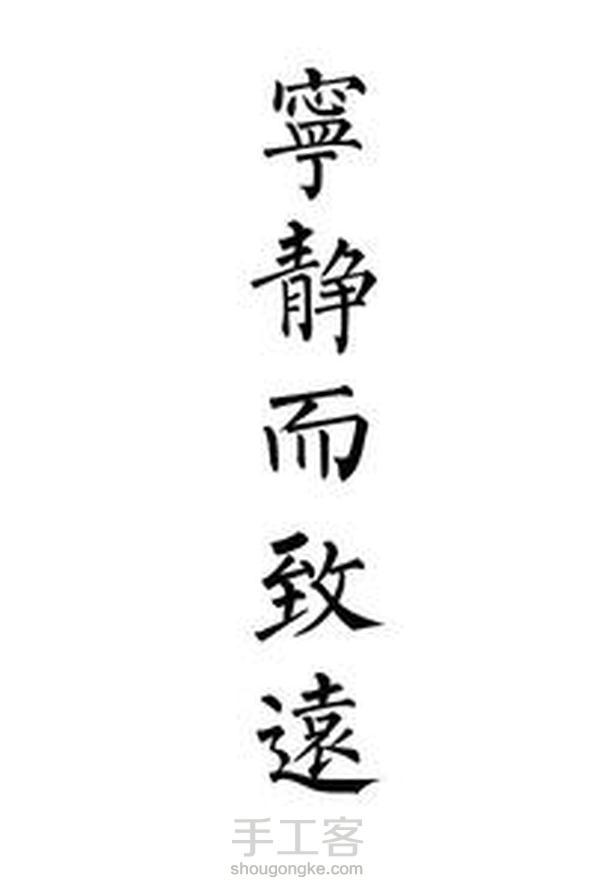 寧静而致遠
手工客
shougongke.com